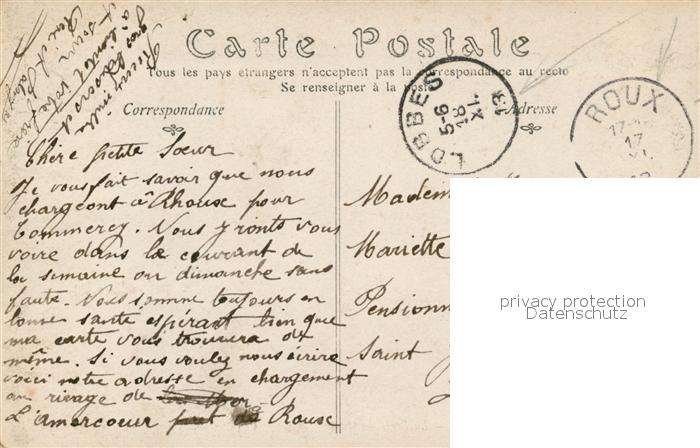 Carte Postale
Tous les pays étrangers n'acceptent pas la correspondance au recto
Se renseigner à la poste
Correspondance
Adresse
LOBBES
5-6
18
XI
13
ROUX
17
17
XI
Chère petite Soeur
Je vous fait savoir que nous
chargeont à Rhoux pour
Commercy. Nous yronts vous
voire dans la courant de
la semaine ou dimanche sans
faute. Nous somme toujours en
bonne sante espérant bien que
ma carte vous trouvera de
même. Si vous voulez nous écrire
voici notre adresse en chargement
au rivage de
L'amercoeur à Roux
Madem
Mariette
Pensionn
Saint
privacy protection
Datenschutz